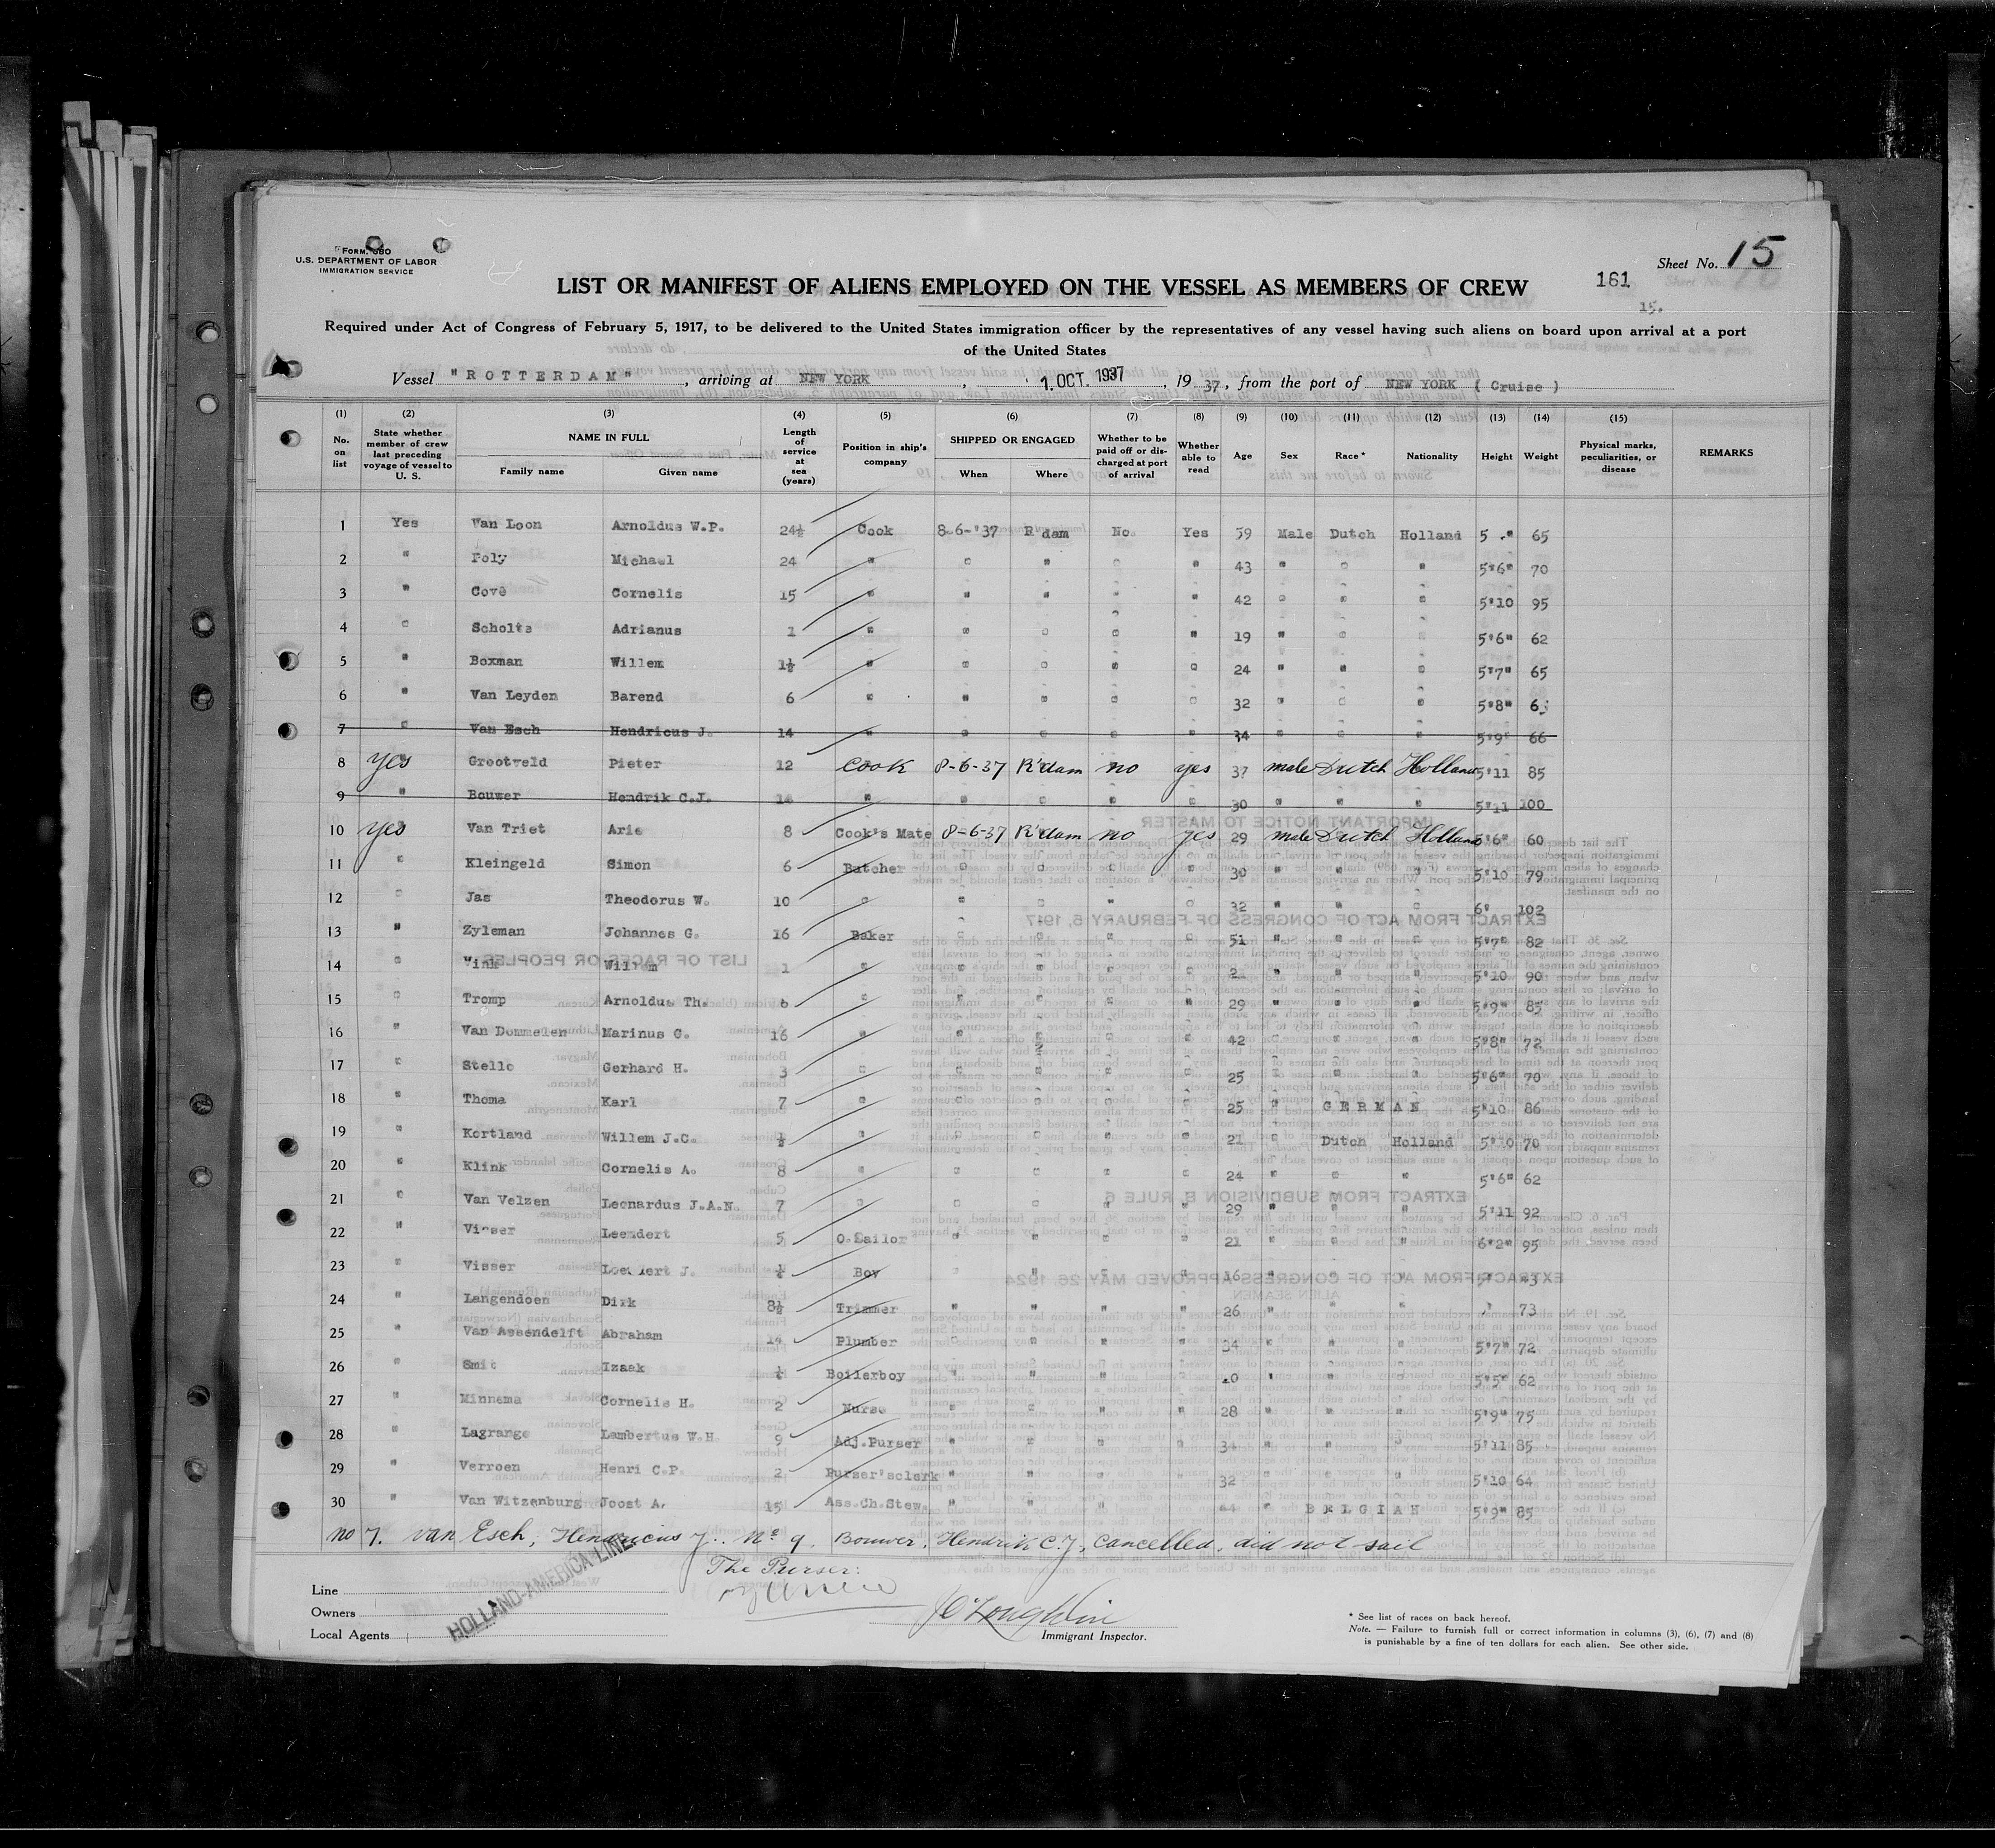 Form 680
U.S. DEPARTMENT OF LABOR
IMMIGRATION SERVICE
Sheet No. 15
LIST OR MANIFEST OF ALIENS EMPLOYED ON THE VESSEL AS MEMBERS OF CREW
161
15.
Required under Act of Congress of February 5, 1917, to be delivered to the United States immigration officer by the representatives of any vessel having such aliens on board upon arrival at a port
of the United States
Vessel "ROTTERDAM", arriving at NEW YORK, 1.OCT.1937, 1937, from the port of NEW YORK ( Cruise )
(1) (2) (3) (4) (5) (6) (7) (8) (9) (10) (11) (12) (13) (14) (15)
No. on list State whether member of crew last preceding voyage of vessel to U. S. NAME IN FULL Family name Given name Length of service at sea (years) Position in ship's company SHIPPED OR ENGAGED When Where Whether to be paid off or discharged at port of arrival Whether able to read Age Sex Race* Nationality Height Weight Physical marks, peculiarities, or disease REMARKS
1 Yes Van Loon Arnoldus W.P. 24½ Cook 8-6-'37 R'dam No. Yes 59 Male Dutch Holland 5 65
2 " Poly Michael 24 " " " " " 43 " " " 5'6" 70
3 " Cové Cornelis 15 " " " " " 42 " " " 5'10 95
4 " Scholts Adrianus 1 " " " " " 19 " " " 5'6" 62
5 " Boxman Willem 1½ " " " " " 24 " " " 5'7" 65
6 " Van Leyden Barend 6 " " " " " 32 " " " 5'8" 63
7 " Van Esch Hendricus J. 14 " " " " " 34 " " " 5'9" 66
8 yes Grootveld Pieter 12 Cook 8-6-37 R'dam no yes 37 male Dutch Holland 5'11 85
9 " Bouwer Hendrik C.J. " " " " " 30 " " " 5'11 100
10 yes Van Triet Arie 8 Cook's Mate 8-6-37 R'dam no yes 29 male Dutch Holland 5'6" 60
11 " Kleingeld Simon 6 Butcher " " " " 30 " " " 5'10 79
12 " Jas Theodorus W. 10 " " " " " 32 " " " 6' 102
13 " Zyleman Johannes G. 16 Baker " " " " 51 " " " 5'7" 82
14 " Vink Willem 1 " " " " " " " " 5'10 90
15 " Tromp Arnoldus Th. 6 " " " " " 29 " " " 5'9" 85
16 " Van Dommelen Marinus C. 16 " " " " " 42 " " " 5'8" 72
17 " Stello Gerhard H. 3 " " " " " 25 " " " 5'6" 70
18 " Thoma Karl 7 " " " " " 25 " GERMAN 5'10 86
19 " Kortland Willem J.C. ½ " " " " " 21 " Dutch Holland 5'10 70
20 " Klink Cornelis A. 8 " " " " " 24 " " " 5'6" 62
21 " Van Velzen Leonardus J.A.N. 7 " " " " " 29 " " " 5'11 92
22 " Visser Leendert 5 O.Sailor " " " " 21 " " " 6'2" 95
23 " Visser Leendert J. Boy " " " " 16 " " "
24 " Langendoen Dirk 8½ Trimmer " " " " 26 " " " 73
25 " Van Assendelft Abraham 14 Plumber " " " " 34 " " " 5'7" 72
26 " Smit Izaak Boilerboy " " " " " " " 5'5" 62
27 " Minnema Cornelis H. 2 Nurse " " " " 28 " " " 5'9" 75
28 " Lagrange Lambertus W.H. 9 Adj.Purser " " " " " " " 5'11 85
29 " Verroen Henri C.P. 2 Purser'sclerk " " " " 32 " " " 5'10 64
30 " Van Witzenburg Joost A. 15 Ass.Ch.Stew. " " " " 44 " BELGIAN 5'9" 85
no 7. van Esch, Hendricus J.. No 9. Bouwer, Hendrik C.J, Cancelled, did not sail
The Purser:
Line
Owners
Local Agents
HOLLAND-AMERICA LINE.
J O'Loughlin
Immigrant Inspector.
* See list of races on back hereof.
Note. — Failure to furnish full or correct information in columns (3), (6), (7) and (8)
is punishable by a fine of ten dollars for each alien. See other side.